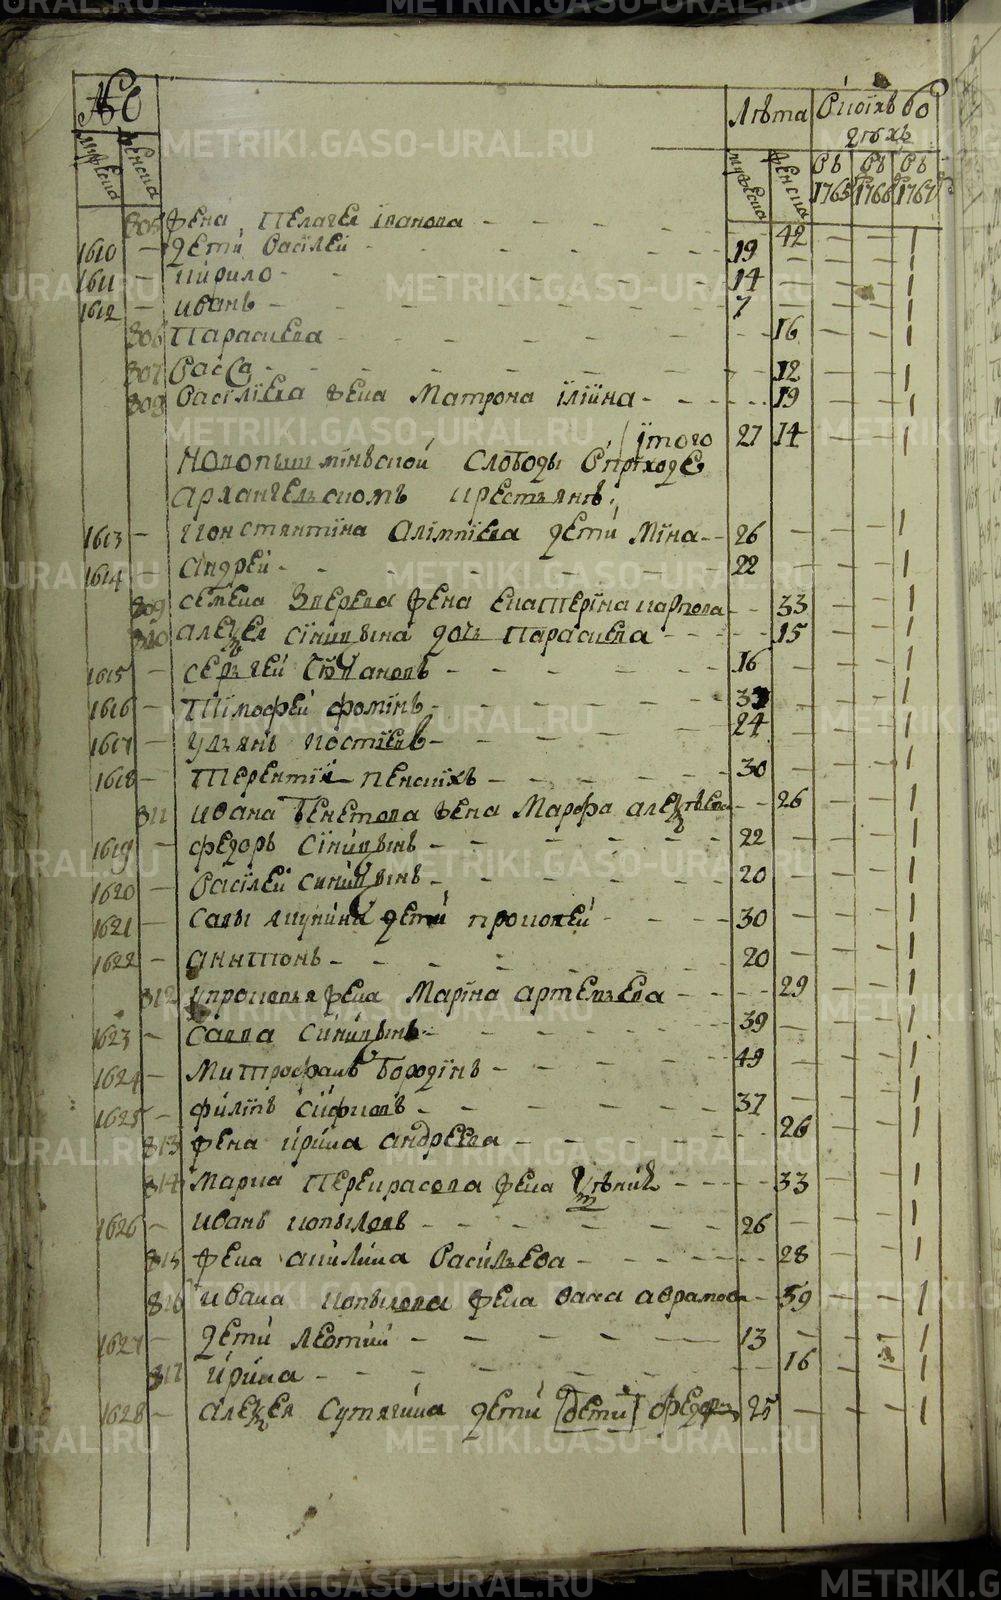 №
Лѣта
мужеска
женска
мужеска
женска
въ 1765
въ 1766
въ 1767
805 жена Пелагея Іванова - - 42 - - 1
1610 - дети Василей - 19 - - - 1
1611 - Кирило - 14 - - - 1
1612 - Иванъ - 7 - - - 1
806 Параскева - 16 - - 1
807 Васса - 12 - - 1
808 Василіева жена Матрона Ілїина - 19 - - 1
Ітого 27 14 - - 1
Новопышминской Слободы в приходе
архангельскомъ крестьянъ:
1613 - Констянтина Алімпіева дети Міна - 26 - - - 1
1614 - Андрей - 22 - - - 1
809 Семена Зверева жена Екатеріна карпова - 33 - - 1
810 Алеѯея Сініцына дочь Параскева - 15 - - 1
1615 - Сергей - 16 - - - 1
1616 - Тімофей Фомінъ - - - - 1
1617 - Ульянъ Костiевъ - 24 - - - 1
1618 - Терентій - 30 - - - 1
811 Ивана жена Марфа Алеѯѣева - 26 - - 1
1619 - Федоръ Сініцынъ - 22 - - - 1
1620 - Васілей Синицынъ - 20 - - - 1
1621 - Савы дети Прокопей - 30 - - - 1
1622 - Антонъ - 20 - - - 1
812 у прокопья жена Маріна Артемьева - 29 - - 1
1623 - Савва Синицынъ - 39 - - - 1
1624 - Митрофанъ Бородінъ - 49 - - - 1
1625 - Филіпъ Сифковъ - 37 - - - 1
813 жена Ирина Андреева - 26 - - 1
814 Мариа Перекрасова жена - 33 - - 1
1626 - Иванъ Копыловъ - 26 - - - 1
815 жена Акилина Васильева - 28 - - 1
816 Ивана Копылова жена Васса Аврамова - 39 - - 1
1627 - дети Леотий - 13 - - - 1
817 Ирина - 16 - - 1
1628 - Алеѯея Сутягина дети [дети] Федоръ 25 - - - 1
METRIKI.GASO-URAL.RU